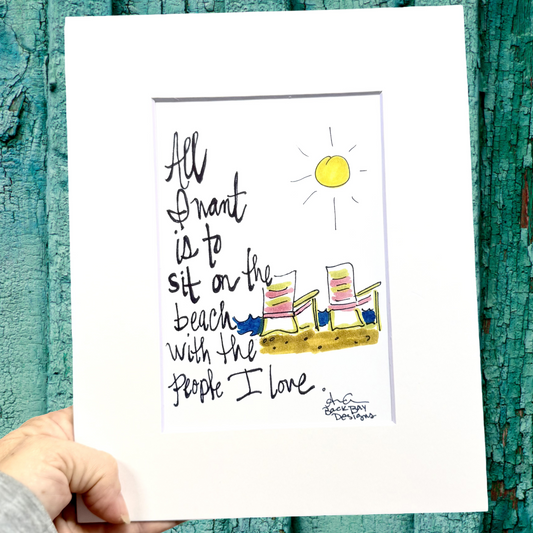 All
I want
is to
sit on the
beach
with the
people I love.
BACK BAY
Designs